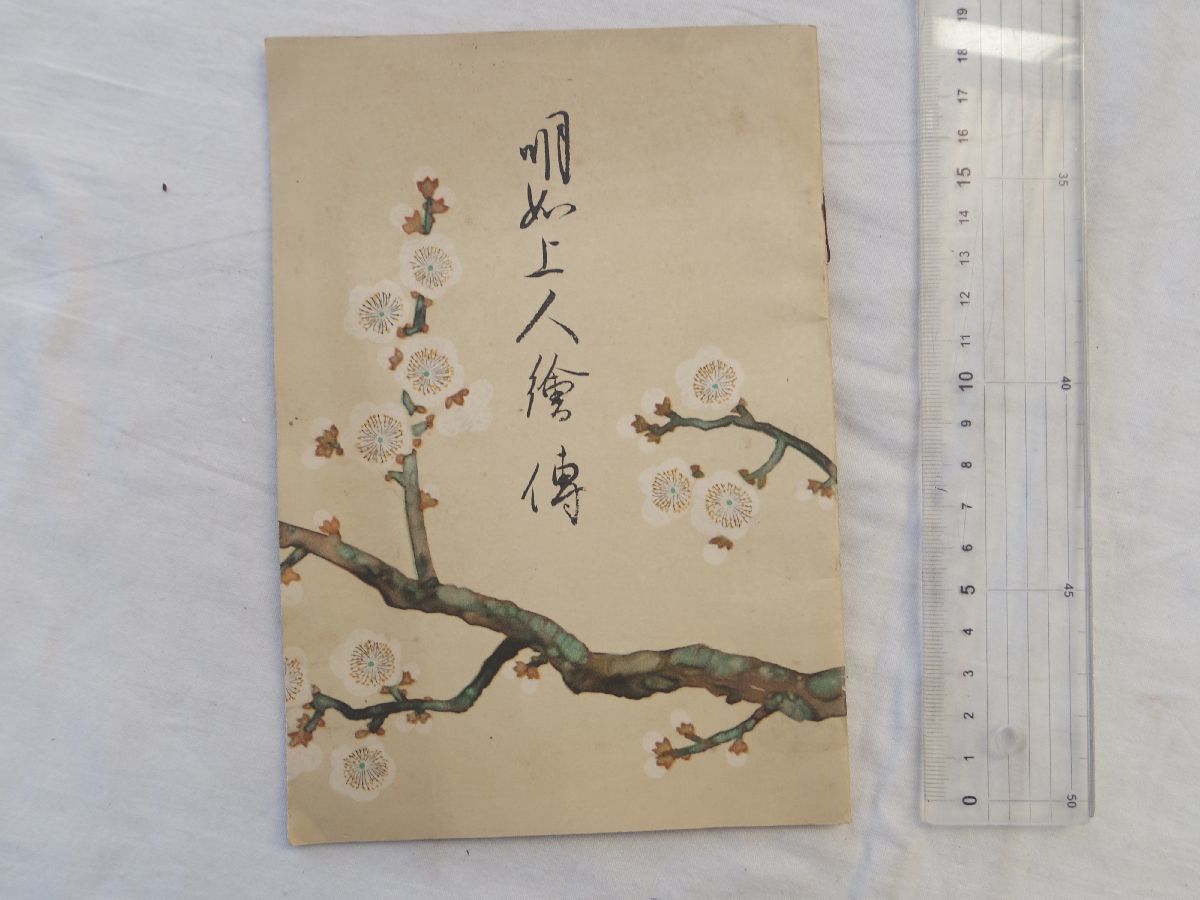 明如上人繪傳
19
18
17
16
15
14
13
12
11
10
9
8
7
6
5
4
3
2
1
0
35
40
45
50